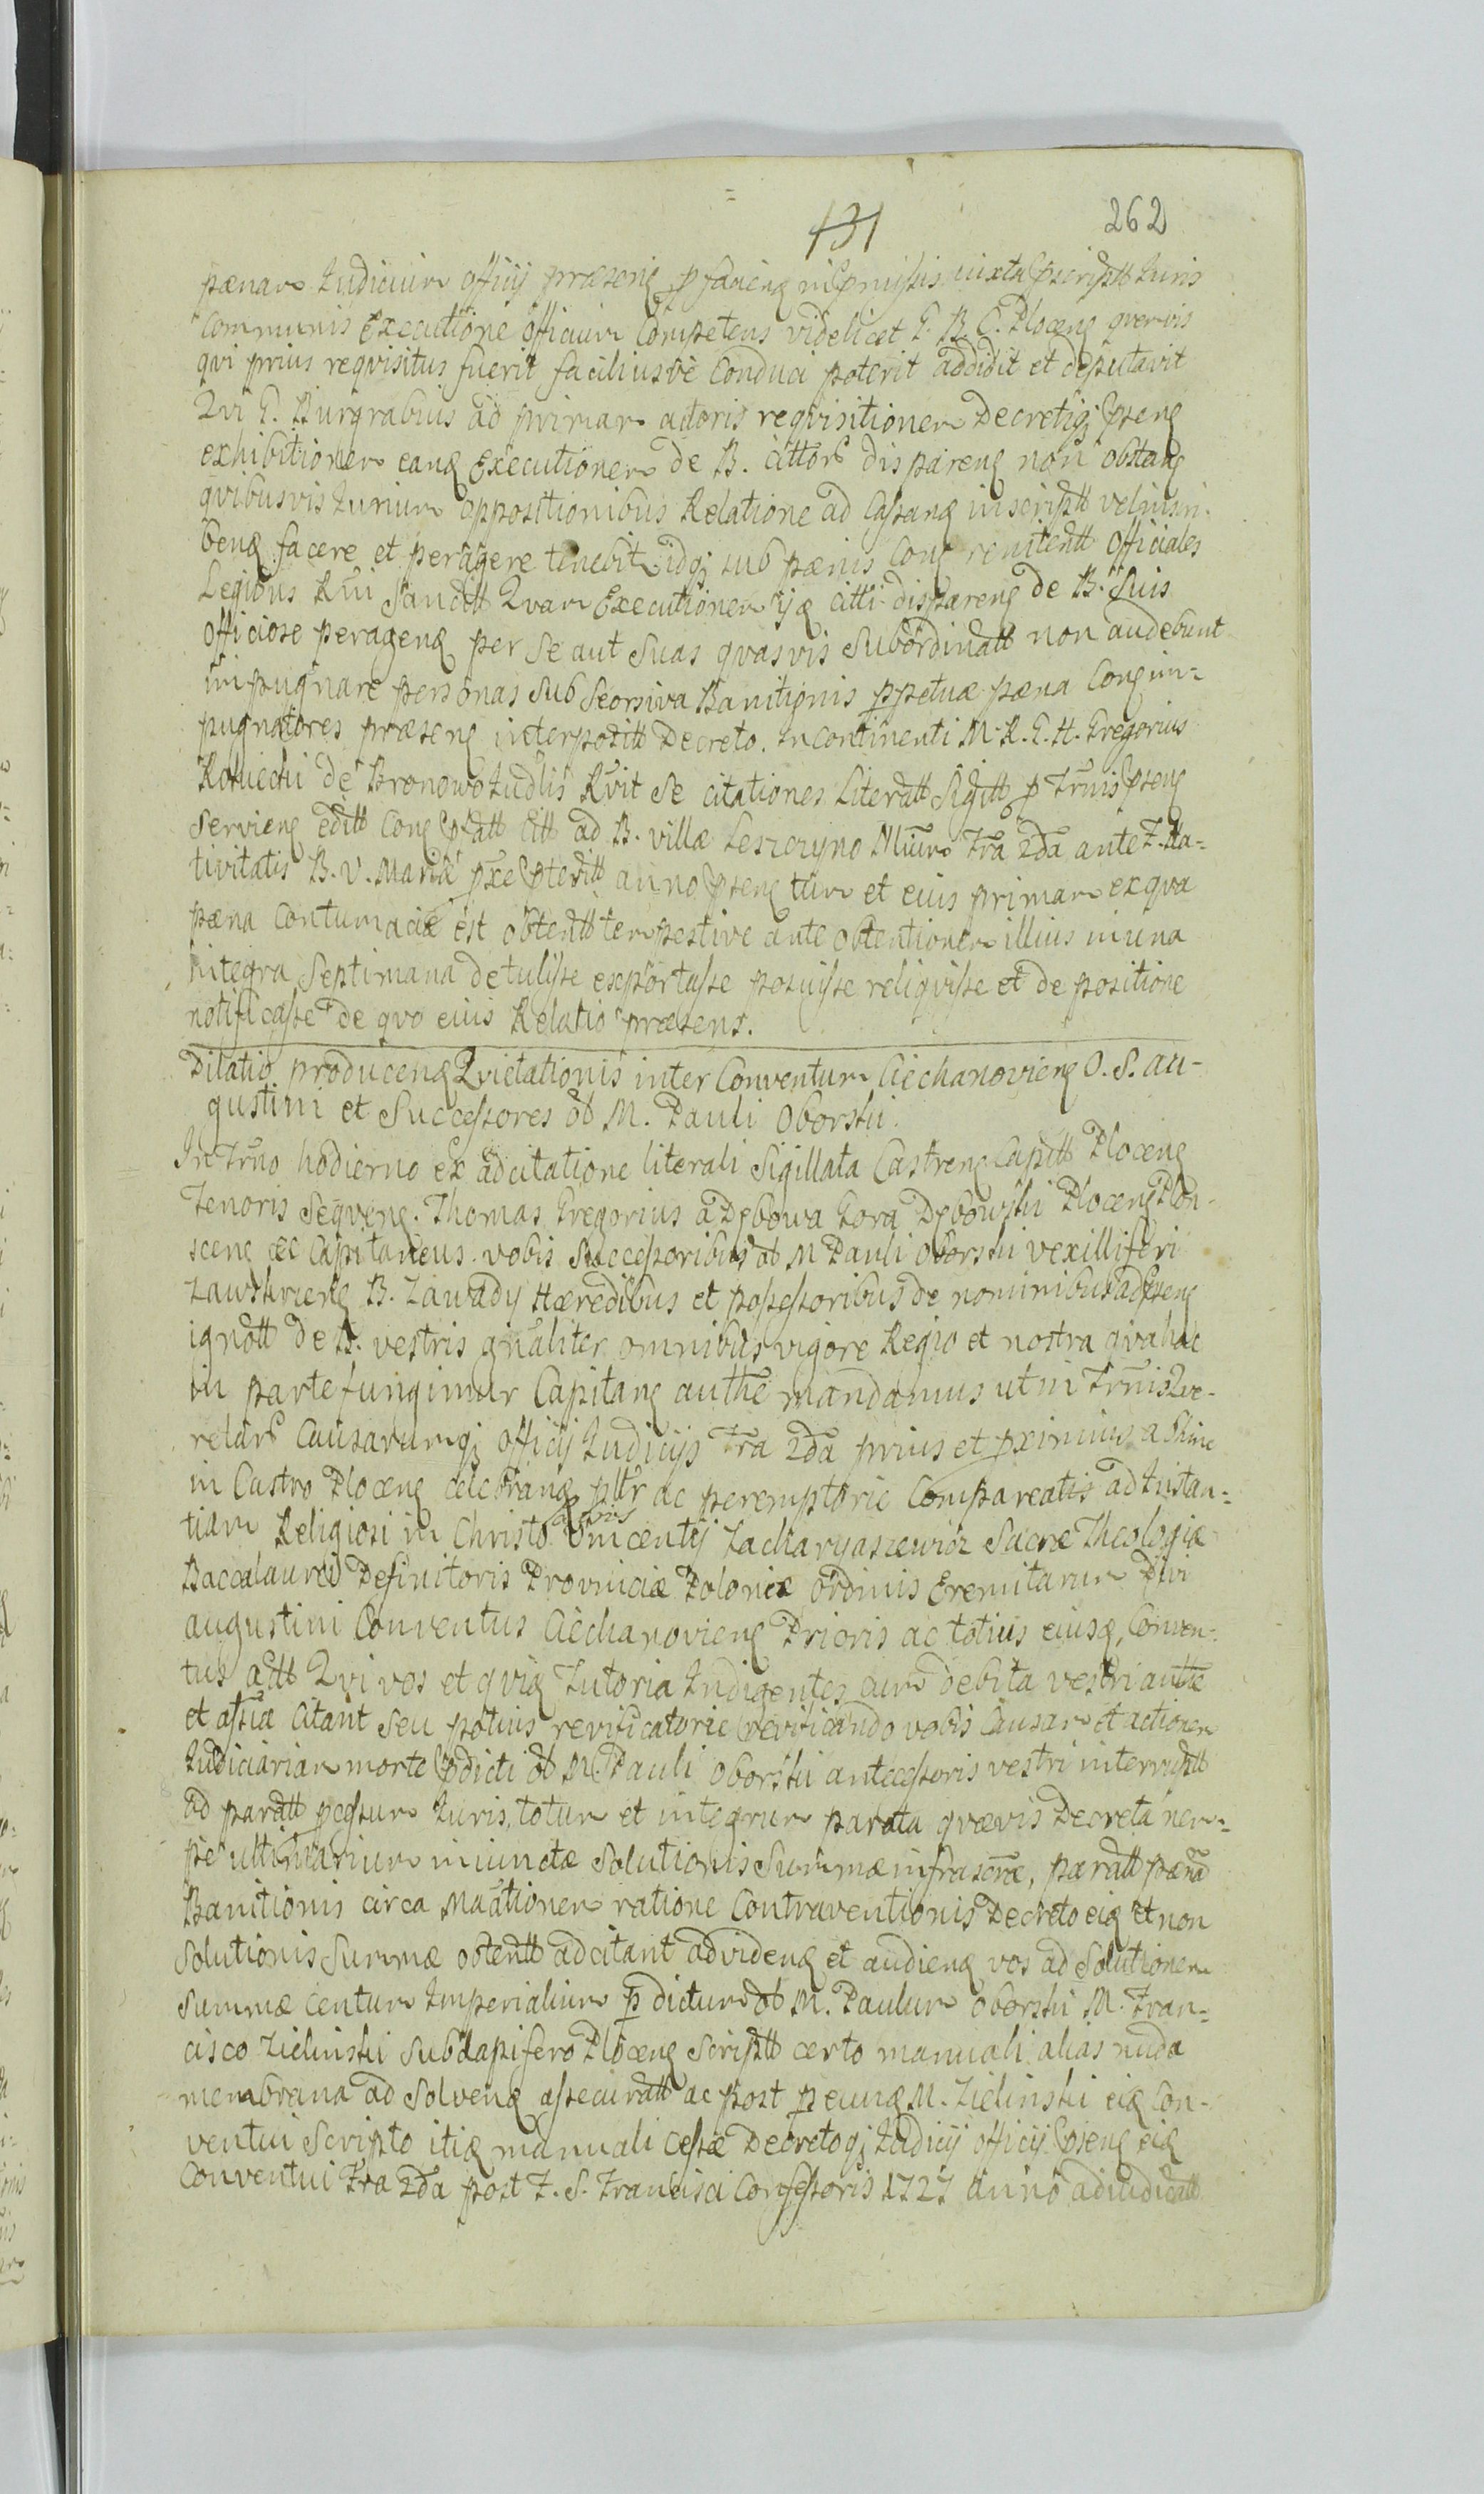 131 262
pænam Judicium officij præseng
Communis Executione officium Competens videlicet G. B. C. Ploceng qvemvis
qvi prius reqvisitus fuerit faciliusve Conduci poterit addidit et deputavit
Qvi G. Burgrabius ad primam actoris reqvisitionem Decretiqj pseng
exhibitionem eanq Executionem de B. cittor dispareng non obstang
qvibusvis Jurium oppositionibus Relatione ad Cassang inscriptt vel
beng facere et peragere tenebit idqj sub pænis Cong renitentt Officiales
Legibus Rni Sancitt Qvam Executionem ijq citti dispareng de B. Suis
Officiose perageng per Se aut Suas qvasvis Subordinatt non audebunt
impugnare personas Sub Seorsiva Banitionis ppetuæ pæna Cong im-
pugnatores præseng interpositt Decreto. Incontinenti M. R. G. H. Gregorius
de Bronowo Judlis Rvit Se citationes Literatt Sigitt p Trnis pseng
Servieng editt Cong citt ad B. villæ Leszczyno Fra 2da ante F. Na-
tivitatis B. V. Mariæ pxe pteritt anno pseng tum et eius primam ex qva
pæna Contumaciæ est obtentt tempestive ante obtentionem illius in una
integra Septimana detulisse exportasse posuisse reliqvisse et de positione
notificasse de qvo eius Relatio præsens.
Dilatio produceng Qvietationis inter Conventum Ciechanovieng O. S. Au-
gustini et Successores ol M. Pauli Oborski.
In Trno hodierno ex adcitatione literali Sigillata Castreng Capitt Ploceng
Tenoris Seqveng. Thomas Gregorius a Dębowa Gora Dębowski Ploceng Plon-
sceng &c Capitaneus. vobis Successoribus ol M Pauli Oborski vexilliferi
Zawskrieng B. Zawady Hæredibus et possessoribus de nominibus ad pseng
ignott de B. vestris gnaliter omnibus vigore Regio et nostra qva hac
in parte fungimur Capitang autthe mandamus ut in Trnis Qve-
relar Causarumqj officij Judicijs Fra 2da prius et pximius a Shinc
in Castro Ploceng celebrang pltr ac peremptorie Compareatis ad Instan-
tiam Religiosi in Christo Patris Vincentij Zacharyaszewicz Sacræ Theologiæ
Baccalaurei Definitoris Provinciæ Poloniæ Ordinis Eremitarum Divi
Augustini Conventus Ciechanovieng Prioris ac totius eiusq Conven-
tus actt Qvi vos et qviq Tutoria Indigentes cum debita vestri autthe
et assia Citant Seu potius revificatorie revificando vobis Causam et actionem
Judiciariam morte pdicti ol M. Pauli Oborski antecessoris vestri interruptt
ad paratt pcessum Juris, totum et integrum parata qvævis Decreta nem-
pe ultimarium iniunctæ Solutionis Summæ infrascræ, paratt pænā
Banitionis circa Mactionem ratione Contraventionis Decreto eiq et non
Solutionis Summæ obtentt adcitant ad videng et audieng vos ad Solutionem
Summæ Centum Imperialium p dictum ol M. Paulum Oborski M. Fran-
cisco Zielinski Subdapifero Ploceng Scriptt certo manuali alias nuda
membrana ad Solveng assecuratt ac post p eunq M. Zielinski eiq Con-
ventui Scripto itiq manuali Cessæ Decretoqj Judicij officij pseng eiq
Conventui Fra 2da post F. S. Francisci Confessoris 1727 Anno adiudicatt